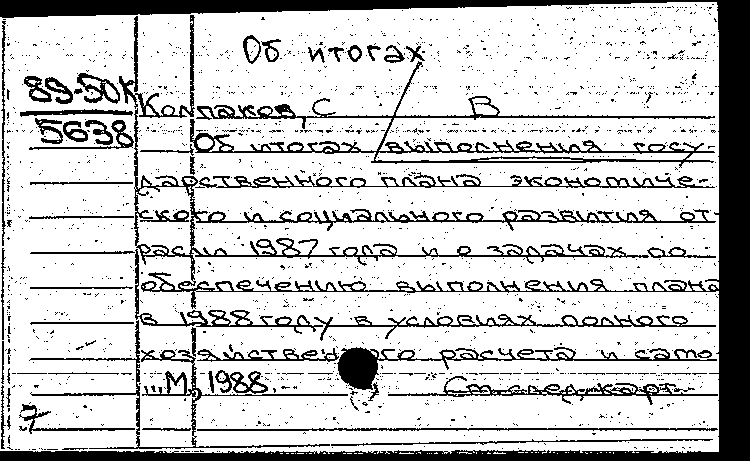 Об итогах
89-50К
5638
Колпаков, С В
Об итогах выполнения госу-
дарственного плана экономиче-
ского и социального развития от-
расли 1987 года и о задачах по
обеспечению выполнения плана
в 1988 году в условиях полного
хозяйственного расчета и само-
...М., 1988.
См. след. карт.
7